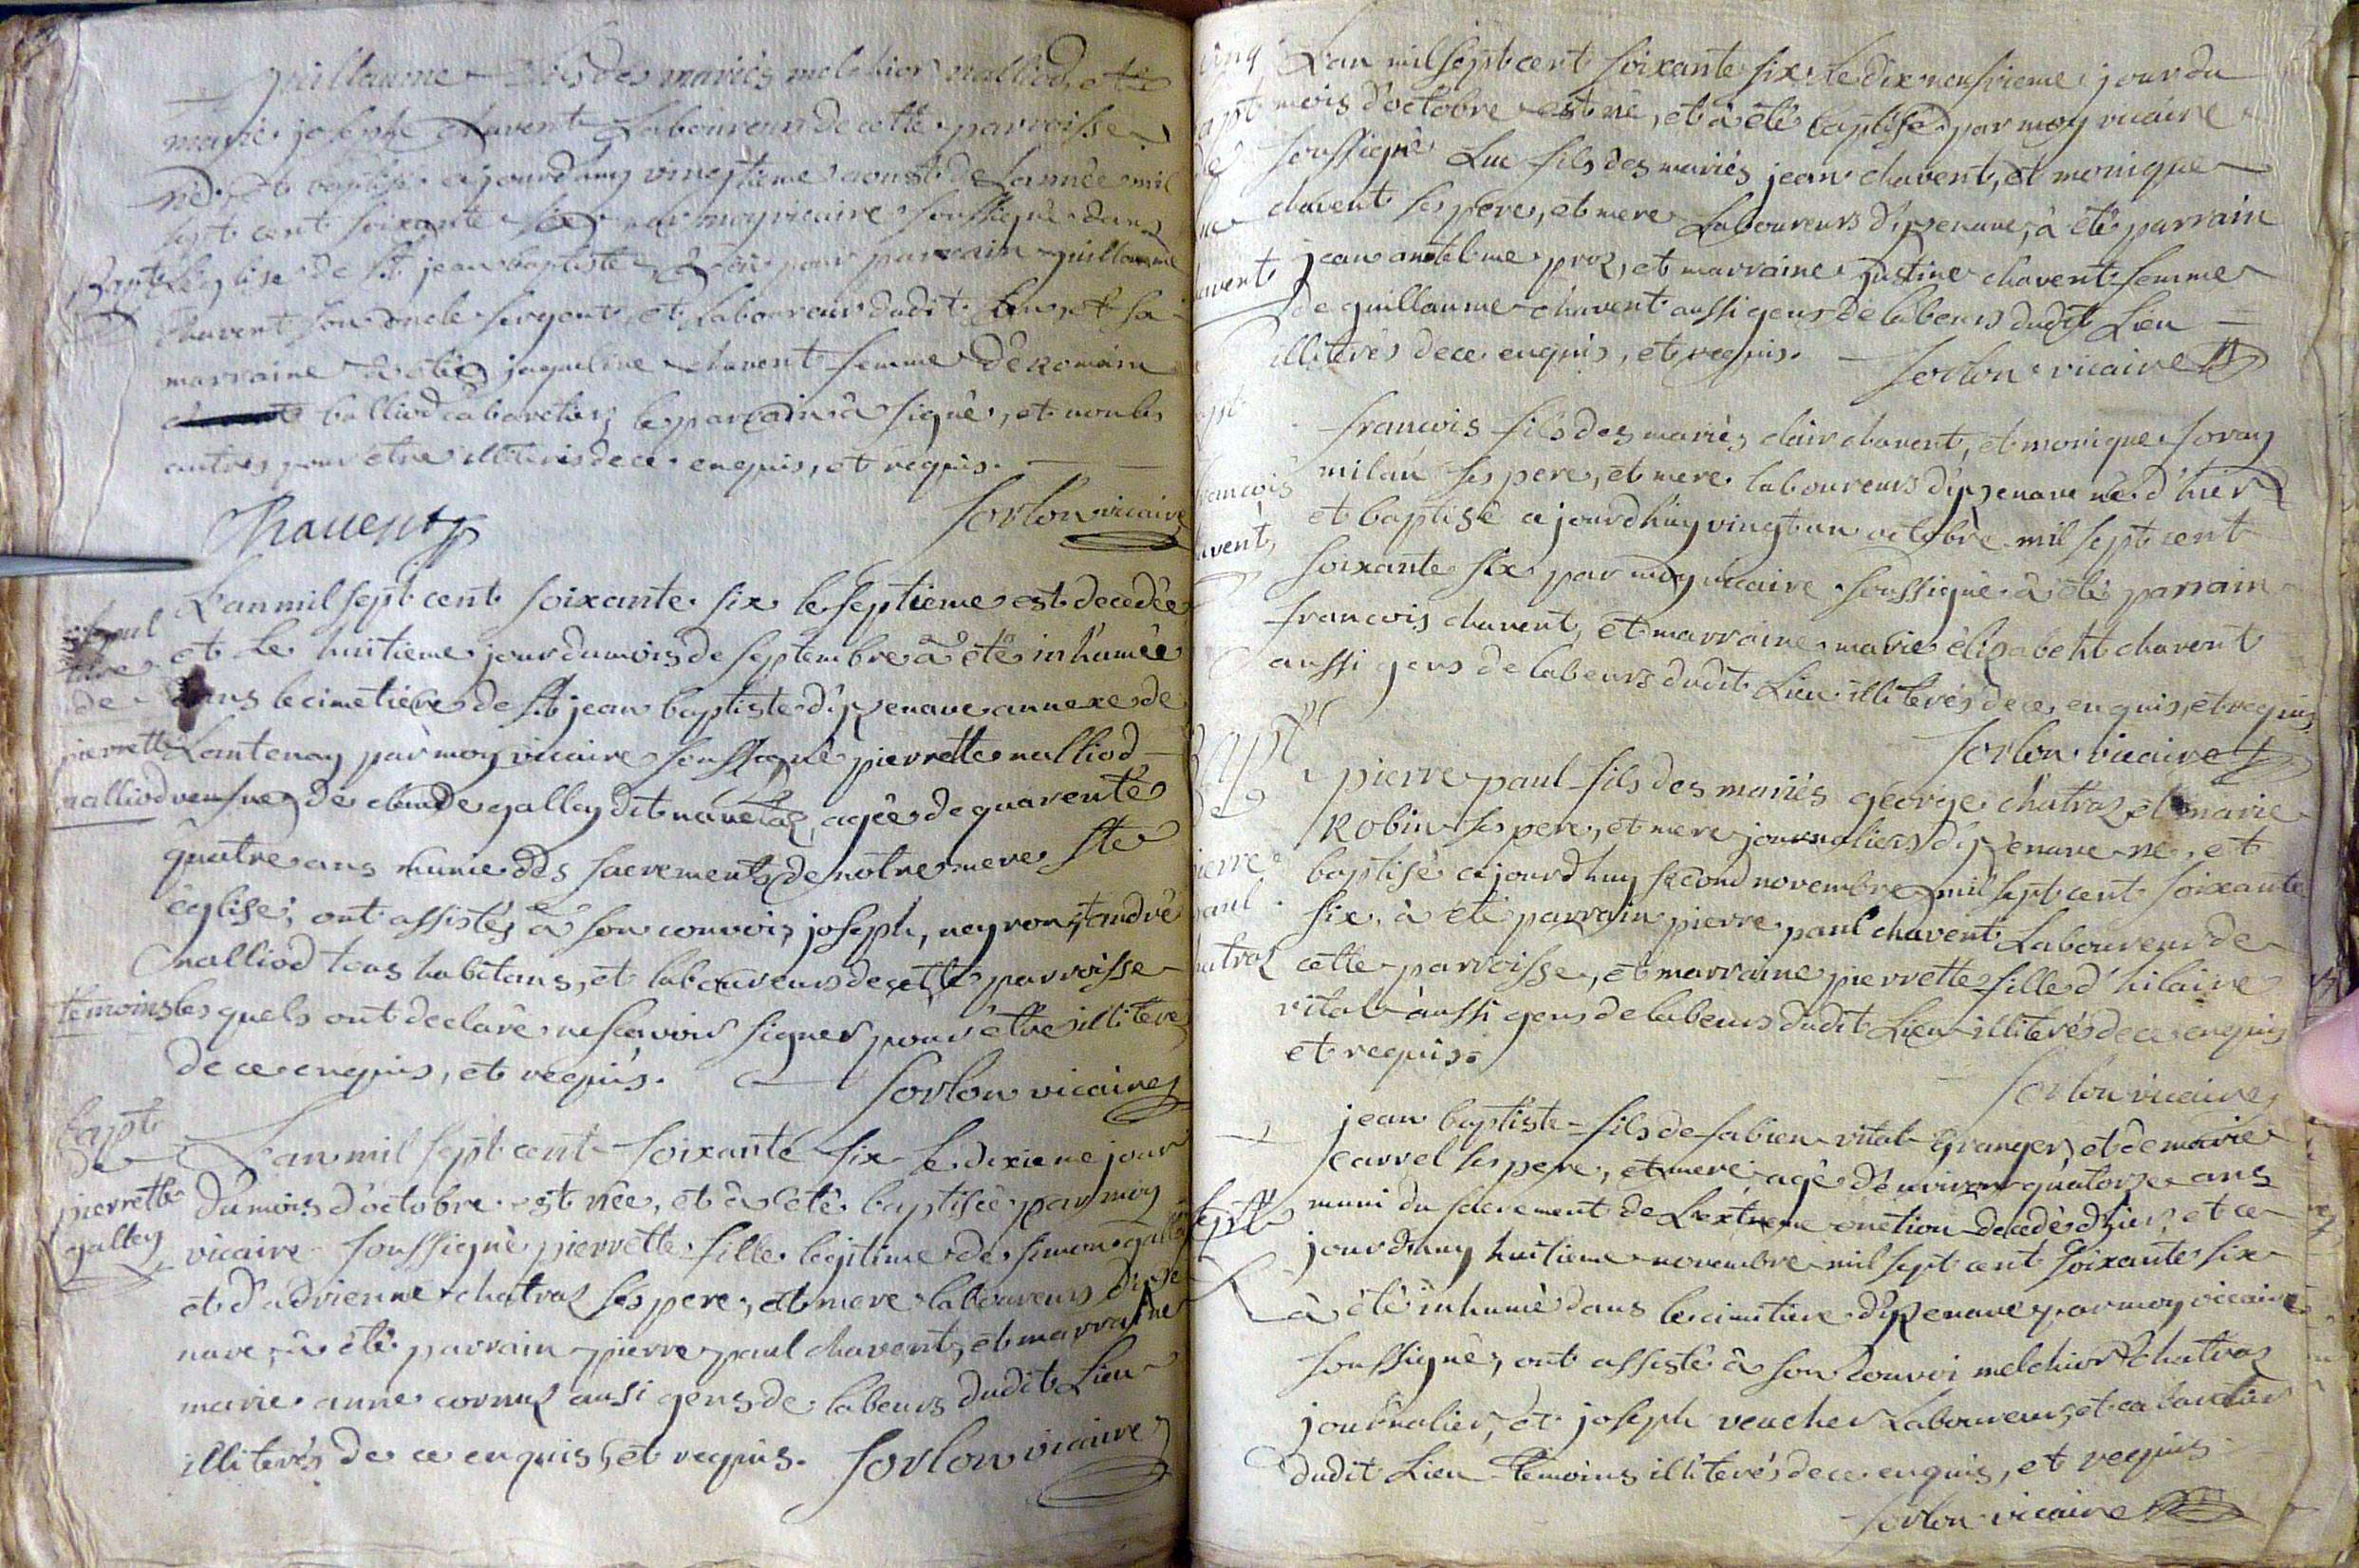 guillaume fils des mariés melchior nalliod, et
marie joseph chavent Laboureurs de cette parroisse
né, et baptisé ajourdhuy vingtieme aoust de Lannée mil
sept cent soixante six par moy vicaire soussigné dans
L'eglise de St jean baptiste, à eû pour parrain guillaume
Chavent son oncle sergent, et Laboureur dudit Lieu, et sa
marraine à été jaqueline chavent femme de Romain
balliod cabaretier; le parrain à signé, et non les
autres pour etre illiterés de ce enquis, et requis.
Chavent
sorlon vicaire
sepul
ture
de
pierrette
nalliod
L'an mil sept cent soixante six le septieme est decedée
et Le huitieme jour du mois de septembre à été inhumée
dans le cimetière de St jean baptiste d'izenave annexe de
Lantenay par moy vicaire soussigné pierrette nalliod
veufve de claude galley dit navetaz, agée de quarente
quatre ans munie des sacrements de nôtre mere Ste
église; ont assistés à son convois joseph, neyron, et andré
nalliod tous habitans, et laboureurs de cette parroisse
temoins les quels ont declaré ne scavoir signer pour être illiterés
de ce enquis, et requis.
sorlon vicaire
bapt
de
pierrette
galley
L'an mil sept cent soixante six le dixieme jour
du mois d'octobre est née, et à été baptisée par moy
vicaire soussigné pierrette fille legitime de simon galley
et d'adrienne chatraz ses pere, et mere laboureurs d'ize
nave, à été parrain pierre paul chavent, et marraine
marie anne cornuz aussi gens de labeurs dudit Lieu
illiterés de ce enquis, et requis.
sorlon vicaire
L'an mil sept cent soixante six Le dix neufvieme jour du
mois d'octobre est né, et à été baptisé par moy vicaire
soussigné Luc fils des mariés jean chavent, et monique
chavent ses pere, et mere Laboureurs d'izenave, à été parrain
jean antelme proz, et marraine justine chavent femme
de guillaume chavent aussi gens de labeurs dudit Lieu
illiterés de ce enquis, et requis.
sorlon vicaire
francois
francois fils des mariés clair chavent, et monique soray
milan ses pere, et mere laboureurs d'izenave né d'hier
et baptisé ajourdhuy vingt un octobre mil sept cent
soixante six par moy vicaire soussigné à été parrain
francois chavent, et marraine marie élizabeht chavent
aussi gens de labeurs dudit Lieu illiterés de ce enquis, et requis
sorlon vicaire
Bapt
de
pierre
paul
chatraz
pierre paul fils des mariés george chatraz, et marie
Robin ses pere, et mere journaliers d'izenave né, et
baptisé ajourdhuy second novembre mil sept cent soixante
six, à été parrain pierre paul chavent Laboureur de
cette parroisse, et marraine pierrette fille d'hilaire
vital aussi gens de labeurs dudit Lieu illiterés de ce enquis
et requis.
sorlon vicaire
jean baptiste fils de fabien vital granger, et de marie
carrel ses pere, et mere agé d'environ quatorze ans
muni du sacrement de L'extreme onction decedé d'hier, et ce
jourdhuy huitieme novembre mil sept cent soixante six
à été inhumé dans le cimetiere d'izenave par moy vicaire
soussigné, ont assisté à son convoi melchior chatraz
journalier, et joseph veucher Laboureur, et cabaretier
dudit Lieu temoins illiterés de ce enquis, et requis
sorlon vicaire